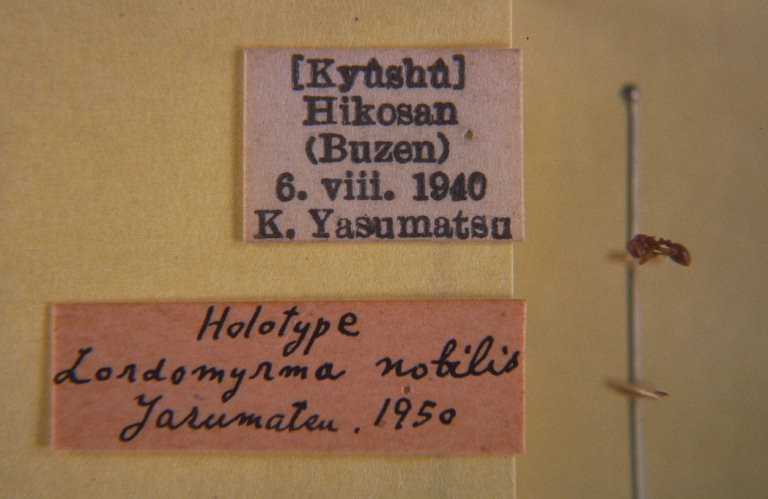 [Kyûshû]
Hikosan
(Buzen)
6. viii. 1940
K. Yasumatsu
Holotype
Lordomyrma nobilis
Yasumatsu. 1950